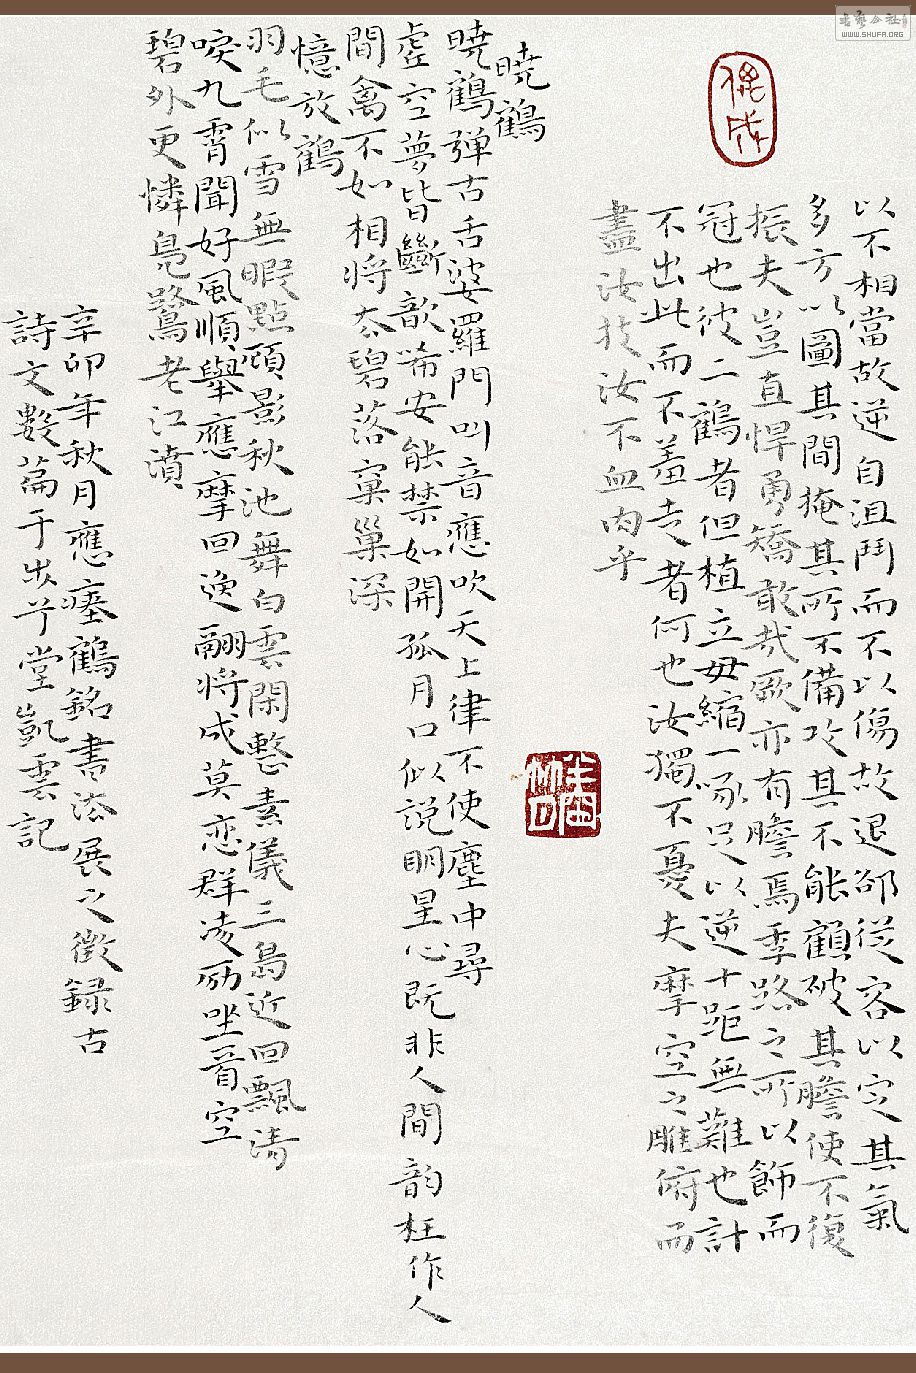 以不相當故逆自沮鬥而不以傷故退郤從容以定其氣
多方以圖其間掩其所不備攻其不能顧破其膽使不復
振夫豈直悍勇矯敢哉厥亦有膽焉季路之所以飾而
冠也彼二鶴者但植立毋縮一啄足以逆十距無難也計
不出此而不羞走者何也汝獨不憂夫摩空之雕俯而
盡汝技汝不血肉乎
曉鶴
曉鶴彈古舌婆羅門叫音應吹天上律不使塵中尋
虛空夢皆斷歆唏安能禁如開孤月口似說明星心既非人間韵枉作人
間禽不如相將去碧落窠巢深
憶放鶴
羽毛似雪無暇點顧影秋池舞白雲閑整素儀三島近回飄清
唳九霄聞好風順舉應摩回逸翮將成莫恋群凌励坐看空
碧外更憐鳧鷺老江濆
辛卯年秋月應瘞鶴銘書法展之徵録古
詩文數篇于出草堂凱雲記
書藝公社
WWW.SHUFA.ORG